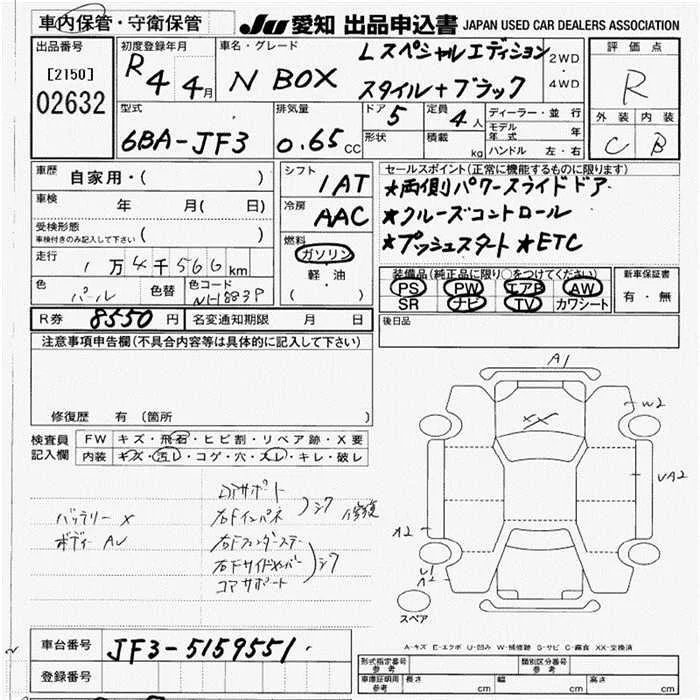 車内保管・守衛保管
JU 愛知 出品申込書 JAPAN USED CAR DEALERS ASSOCIATION
出品番号 [2150] 02632
初度登録年月 R4 4月
車名・グレード N BOX Lスペシャルエディション
スタイル+ブラック
2WD・4WD
評価点 R
外装 C 内装 B
型式 6BA-JF3
排気量 0.65 CC
ドア 5 定員 4人
形状 積載 kg
ディーラー・並行
モデル年式 年
ハンドル 左・右
車歴 自家用・( )
車検 年 月( 日)
受検形態
車検付きのみ記入して下さい ( )
走行 1万4千566km
色 パール 色替 色コード NH883P
シフト 1AT
冷房 AAC
燃料 ガソリン
軽・油
( )
セールスポイント(正常に機能するものに限ります)
★両側パワースライドドア
★クルーズコントロール
★プッシュスタート ★ETC
装備品(純正品に限り○をつけてください)
PS PW エアB AW
SR ナビ TV カワシート
新車保証書
有・無
R券 8550円 名変通知期限 月 日
後日品
注意事項申告欄(不具合内容等は具体的に記入して下さい)
修復歴 有 (箇所
検査員記入欄
FW キズ・飛石・ヒビ割・リペア跡・X要
内装 キズ・汚レ・コゲ・穴・スレ・キレ・破レ
バッテリーX
右Fインパネ
修復
コアサポート
A1
XX
W2
A2
スペア
A-キズ E-エクボ U-凹み W-補修跡 S-サビ C-腐食 XX-交換済
車台番号 JF3-5159551
登録番号
形式指定番号 参考
類別区分番号 参考
車庫証明用 参考 長さ cm 幅 cm 高さ cm